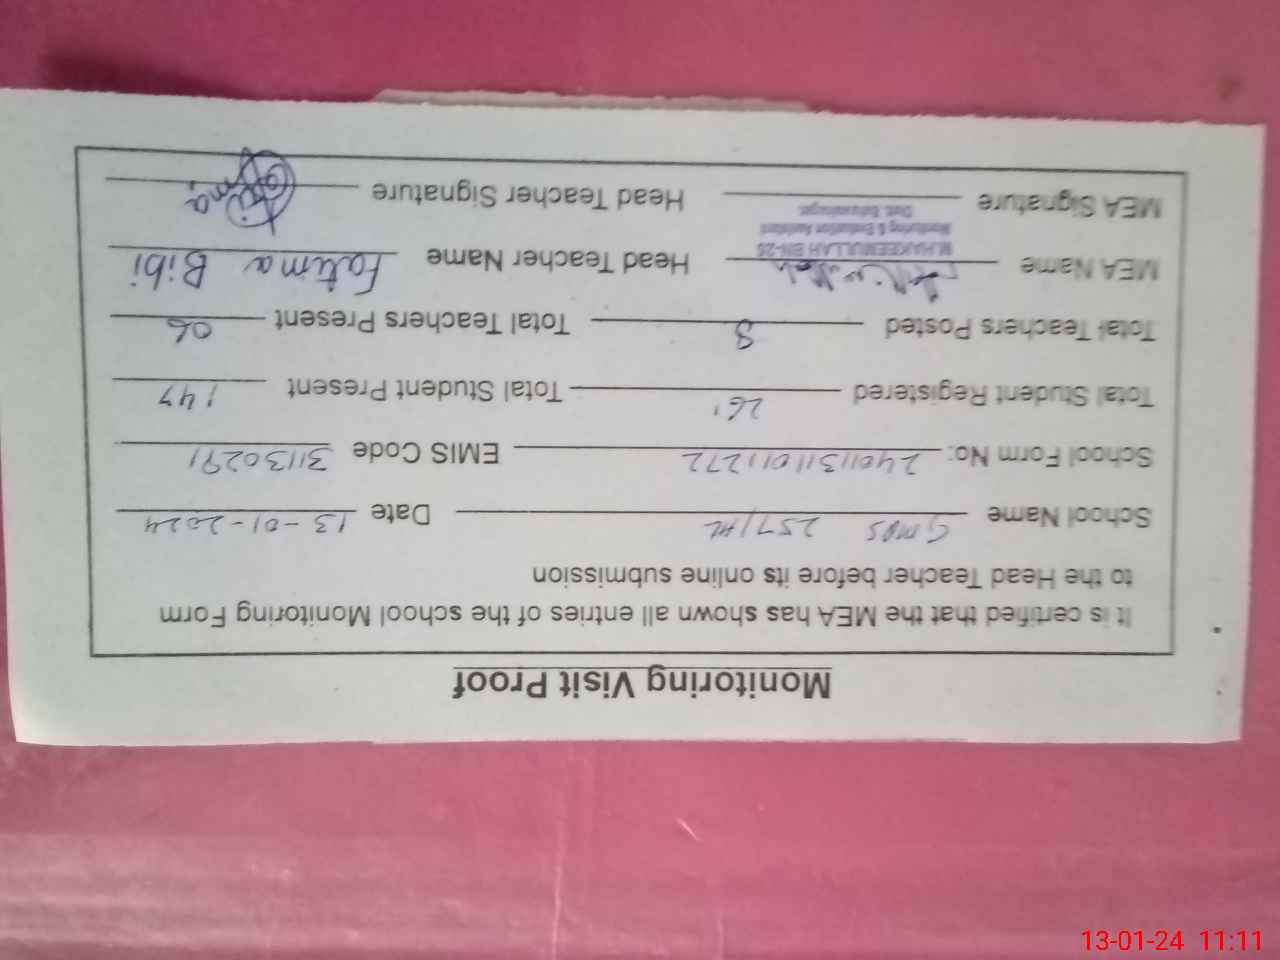 Monitoring Visit Proof
It is certified that the MEA has shown all entries of the school Monitoring Form
to the Head Teacher before its online submission
School Name GMPS 257/HL Date 13-01-2024
School Form No: 24011311011272 EMIS Code 31130291
Total Student Registered 261 Total Student Present 147
Total Teachers Posted 8 Total Teachers Present 06
MEA Name Head Teacher Name Fatima Bibi
M.HAKEEMULLAH BN-26
Monitoring & Evaluation Assistant
Distt. Bahawalnagar.
MEA Signature Head Teacher Signature Fatima
13-01-24 11:11